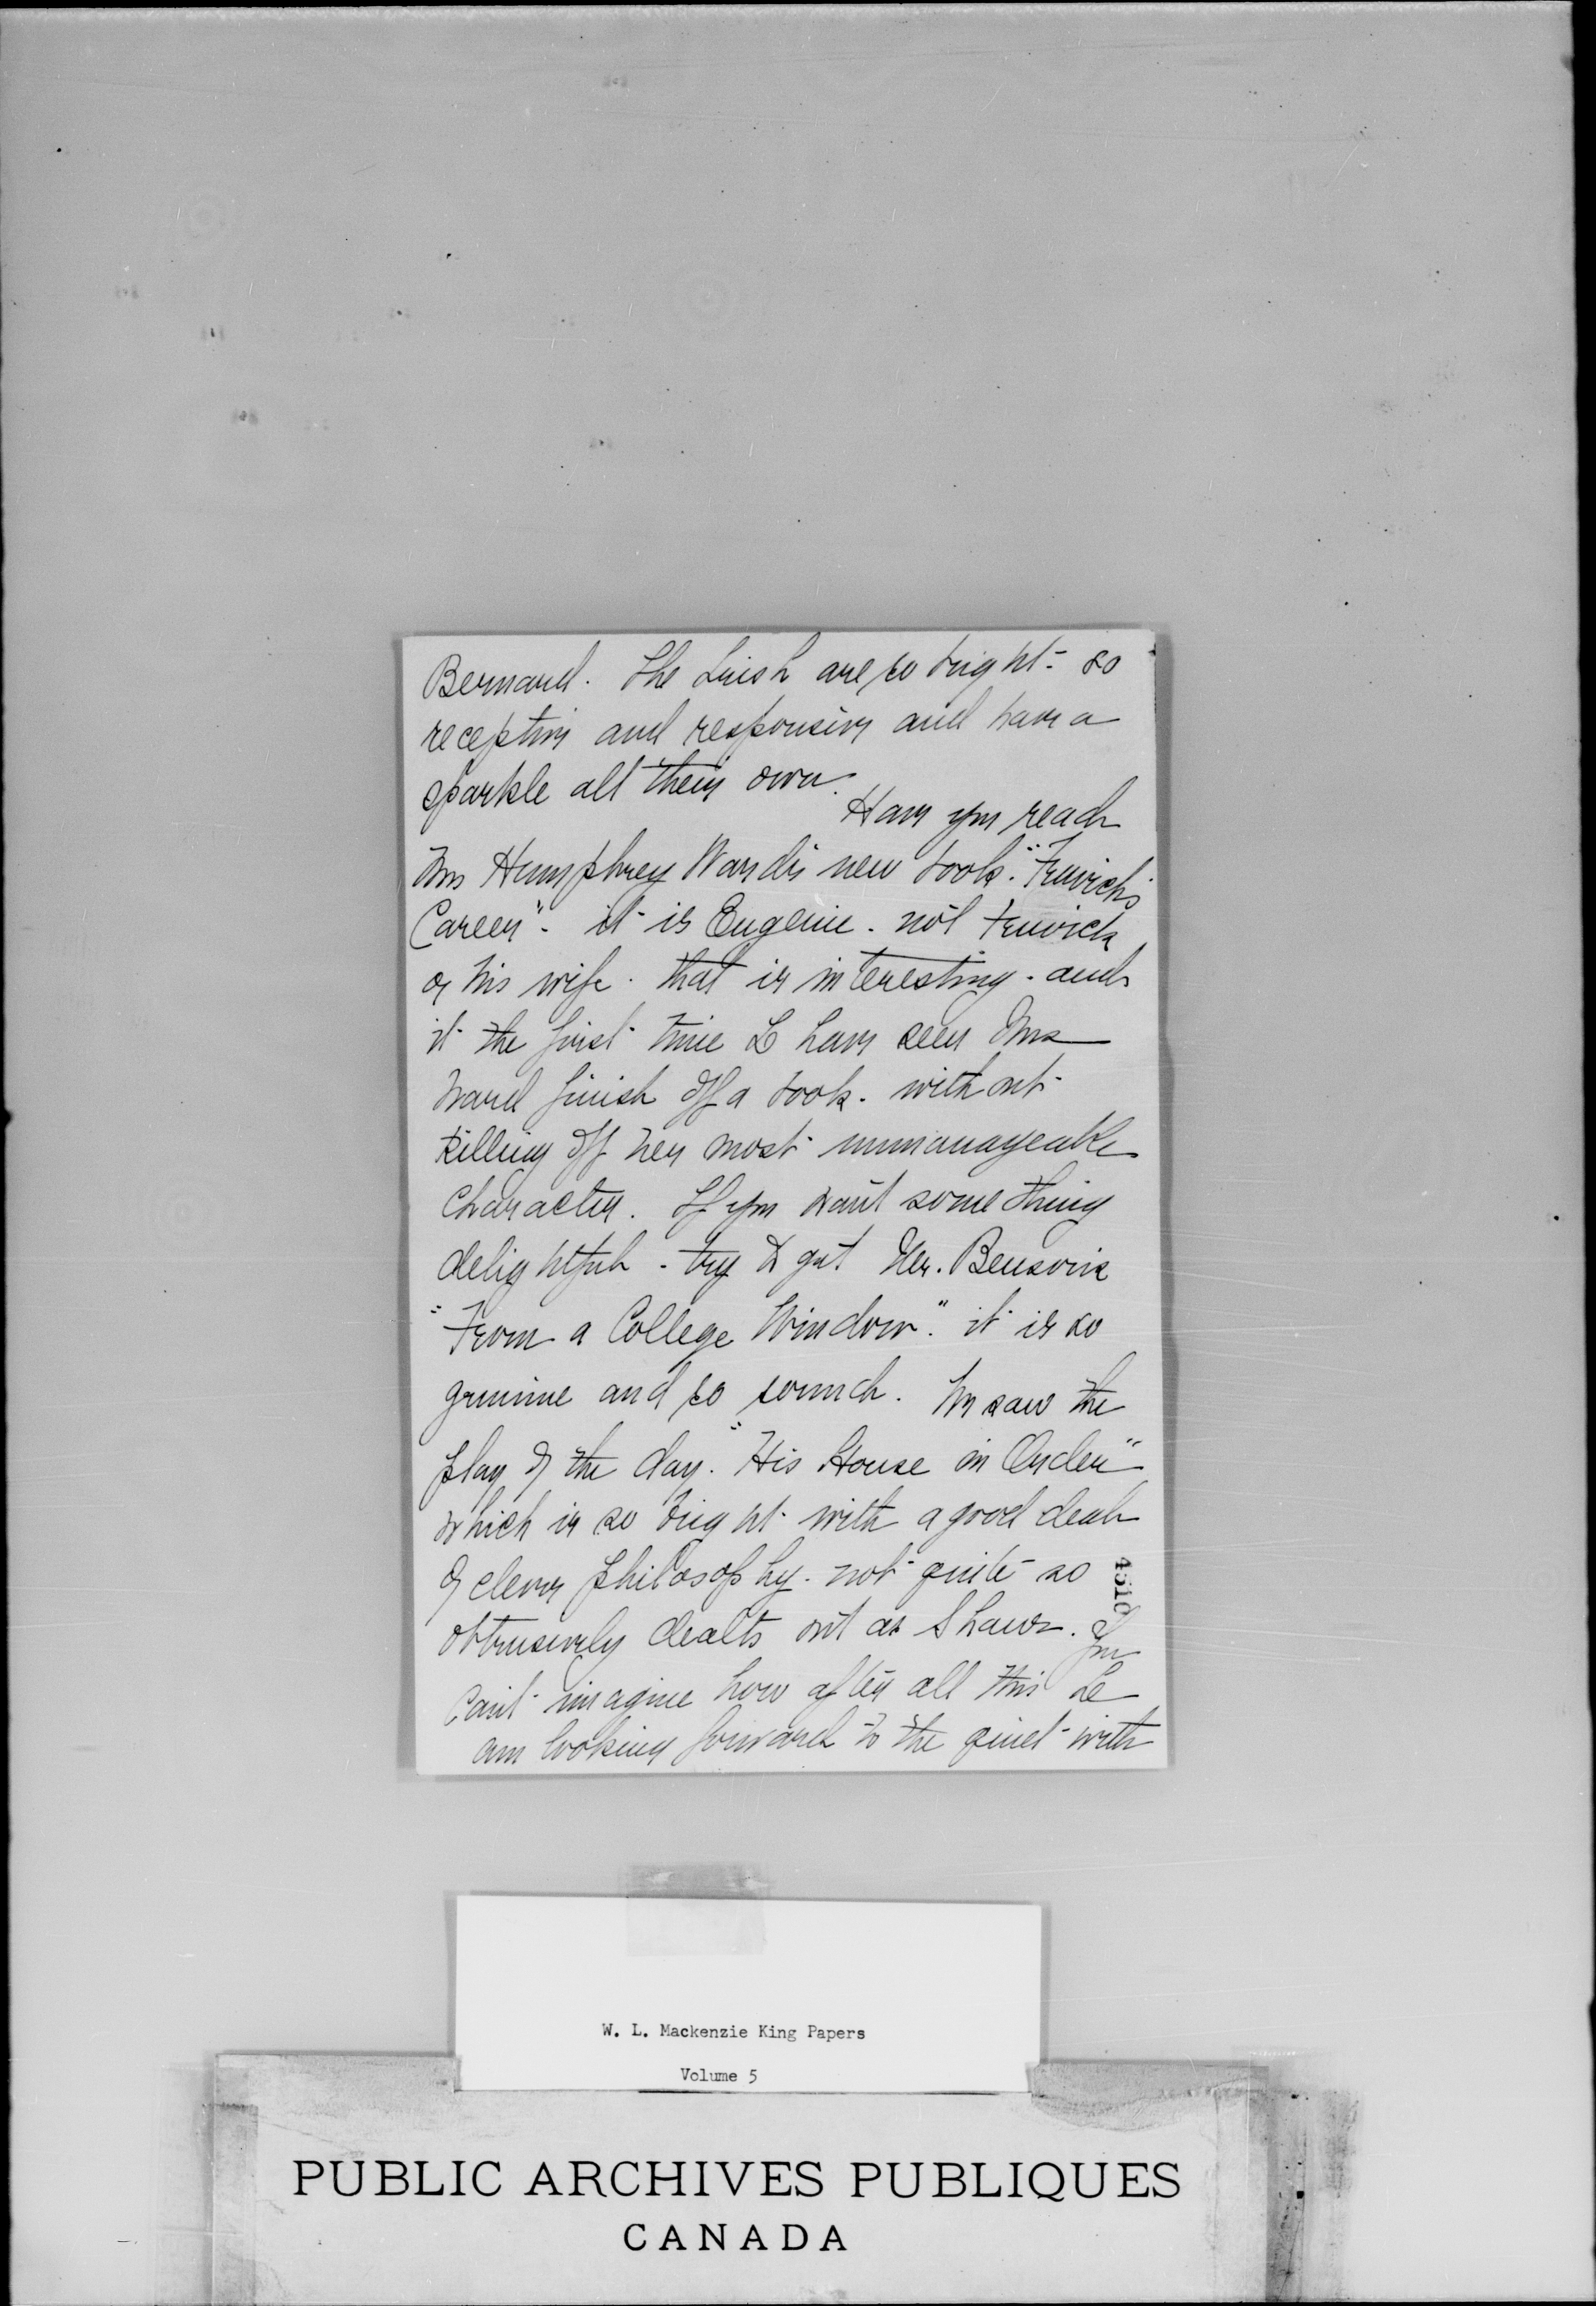 Bernard. The Irish are so bright - so
receptive and responsive and have a
sparkle all their own.
Have you read
Mrs Humphrey Ward's new book. "Fenwick's
Career" - it is Eugenie - not Fenwick
or his wife - that is interesting - and
it the first time I have seen Mrs
Ward finish off a book - without
killing off her most unmanageable
character. If you want something
delightful - try & get Mr. Benson's
"From a College Window". it is so
genuine and so sound. We saw the
play of the day. "His House in Order"
which is so bright with a good deal
of clever philosophy - not quite so
obtrusively dealt out as Shaws. You
can't imagine how after all this I
am looking forward to the quiet with
4510
W. L. Mackenzie King Papers
Volume 5
PUBLIC ARCHIVES PUBLIQUES
CANADA